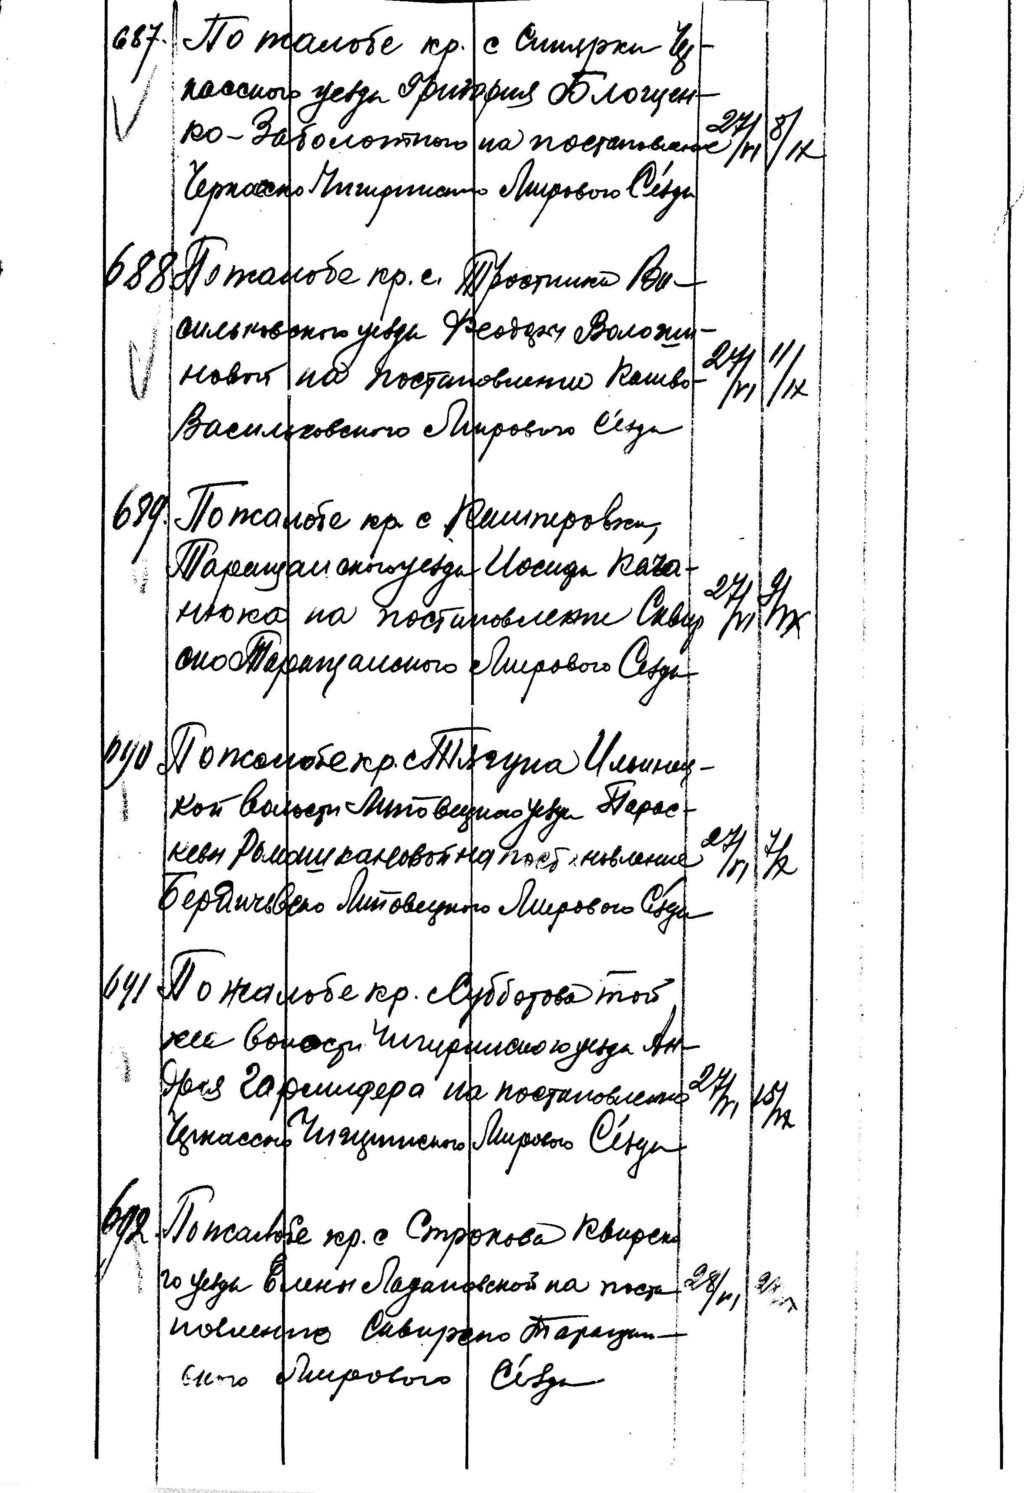 687. По жалобе кр. с Смилрки Чер-
касского уезда Григория Блощен-
ко-Заболотного на постановление 27/VI 8/IX
Черкасско Чигиринского Мирового Сезда
688 По жалобе кр. с. Тростинки Ва-
сильковского уезда Феодоры Волоши-
новой на постановление Киево- 27/VI 11/IX
Васильковского Мирового Сезда
689. По жалобе кр с Кашперовки,
Таращанского уезда Иосифа Кача-
нюка на постановление Сквир 27/VI 9/IX
ско Таращанского Мирового Сезда
690 По жалобе кр. с Тягуна Ильинец-
кой волости Липовецкого уезда Парас-
кевы Ромашкановой на постановление 27/VI 7/X
Бердичевско Липовецкого Мирового Сезда
691 По жалобе кр. с Субботова той
же волости Чигиринского уезда Ан-
дрея на постановление 27/VI 15/IX
Черкасско Чигиринского Мирового Сезда
692. По жалобе кр. с Строкова Сквирско
го уезда Елены Ладановской на поста 28/VI
новление Сквирско Таращан-
ского Мирового Сезда